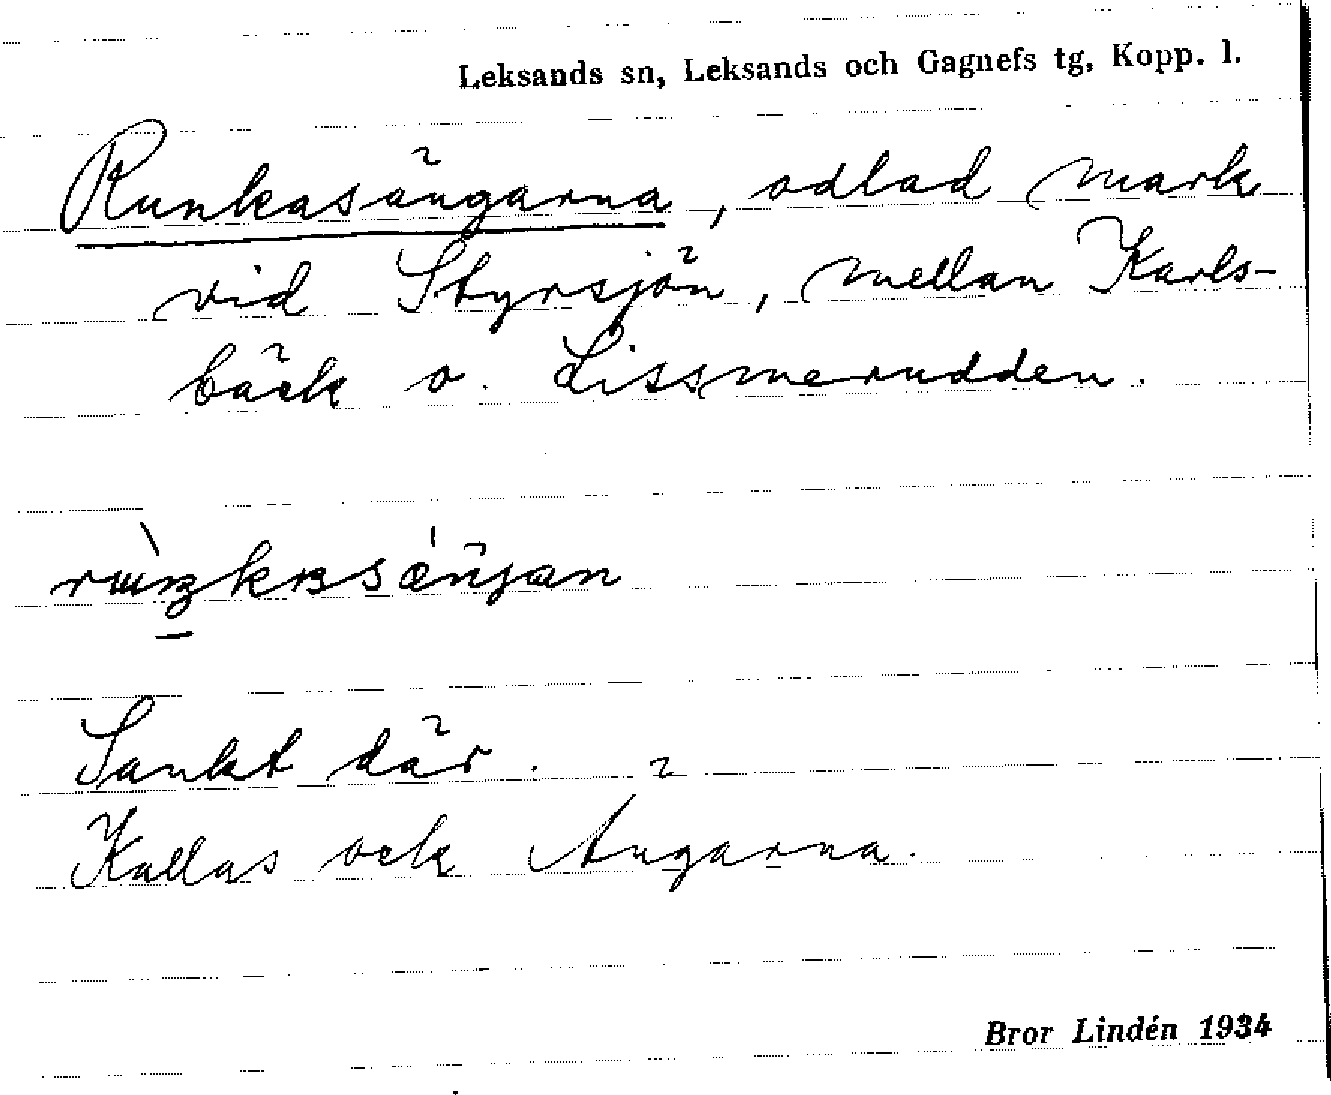 Leksands sn, Leksands och Gagnefs tg, Kopp. l.
Runkasängarna, odlad mark
vid Styrsjön, mellan Karls-
bäck o. Lissmerudden.
Sankt där.
Kallas ock Ängarna.
Bror Lindén 1934